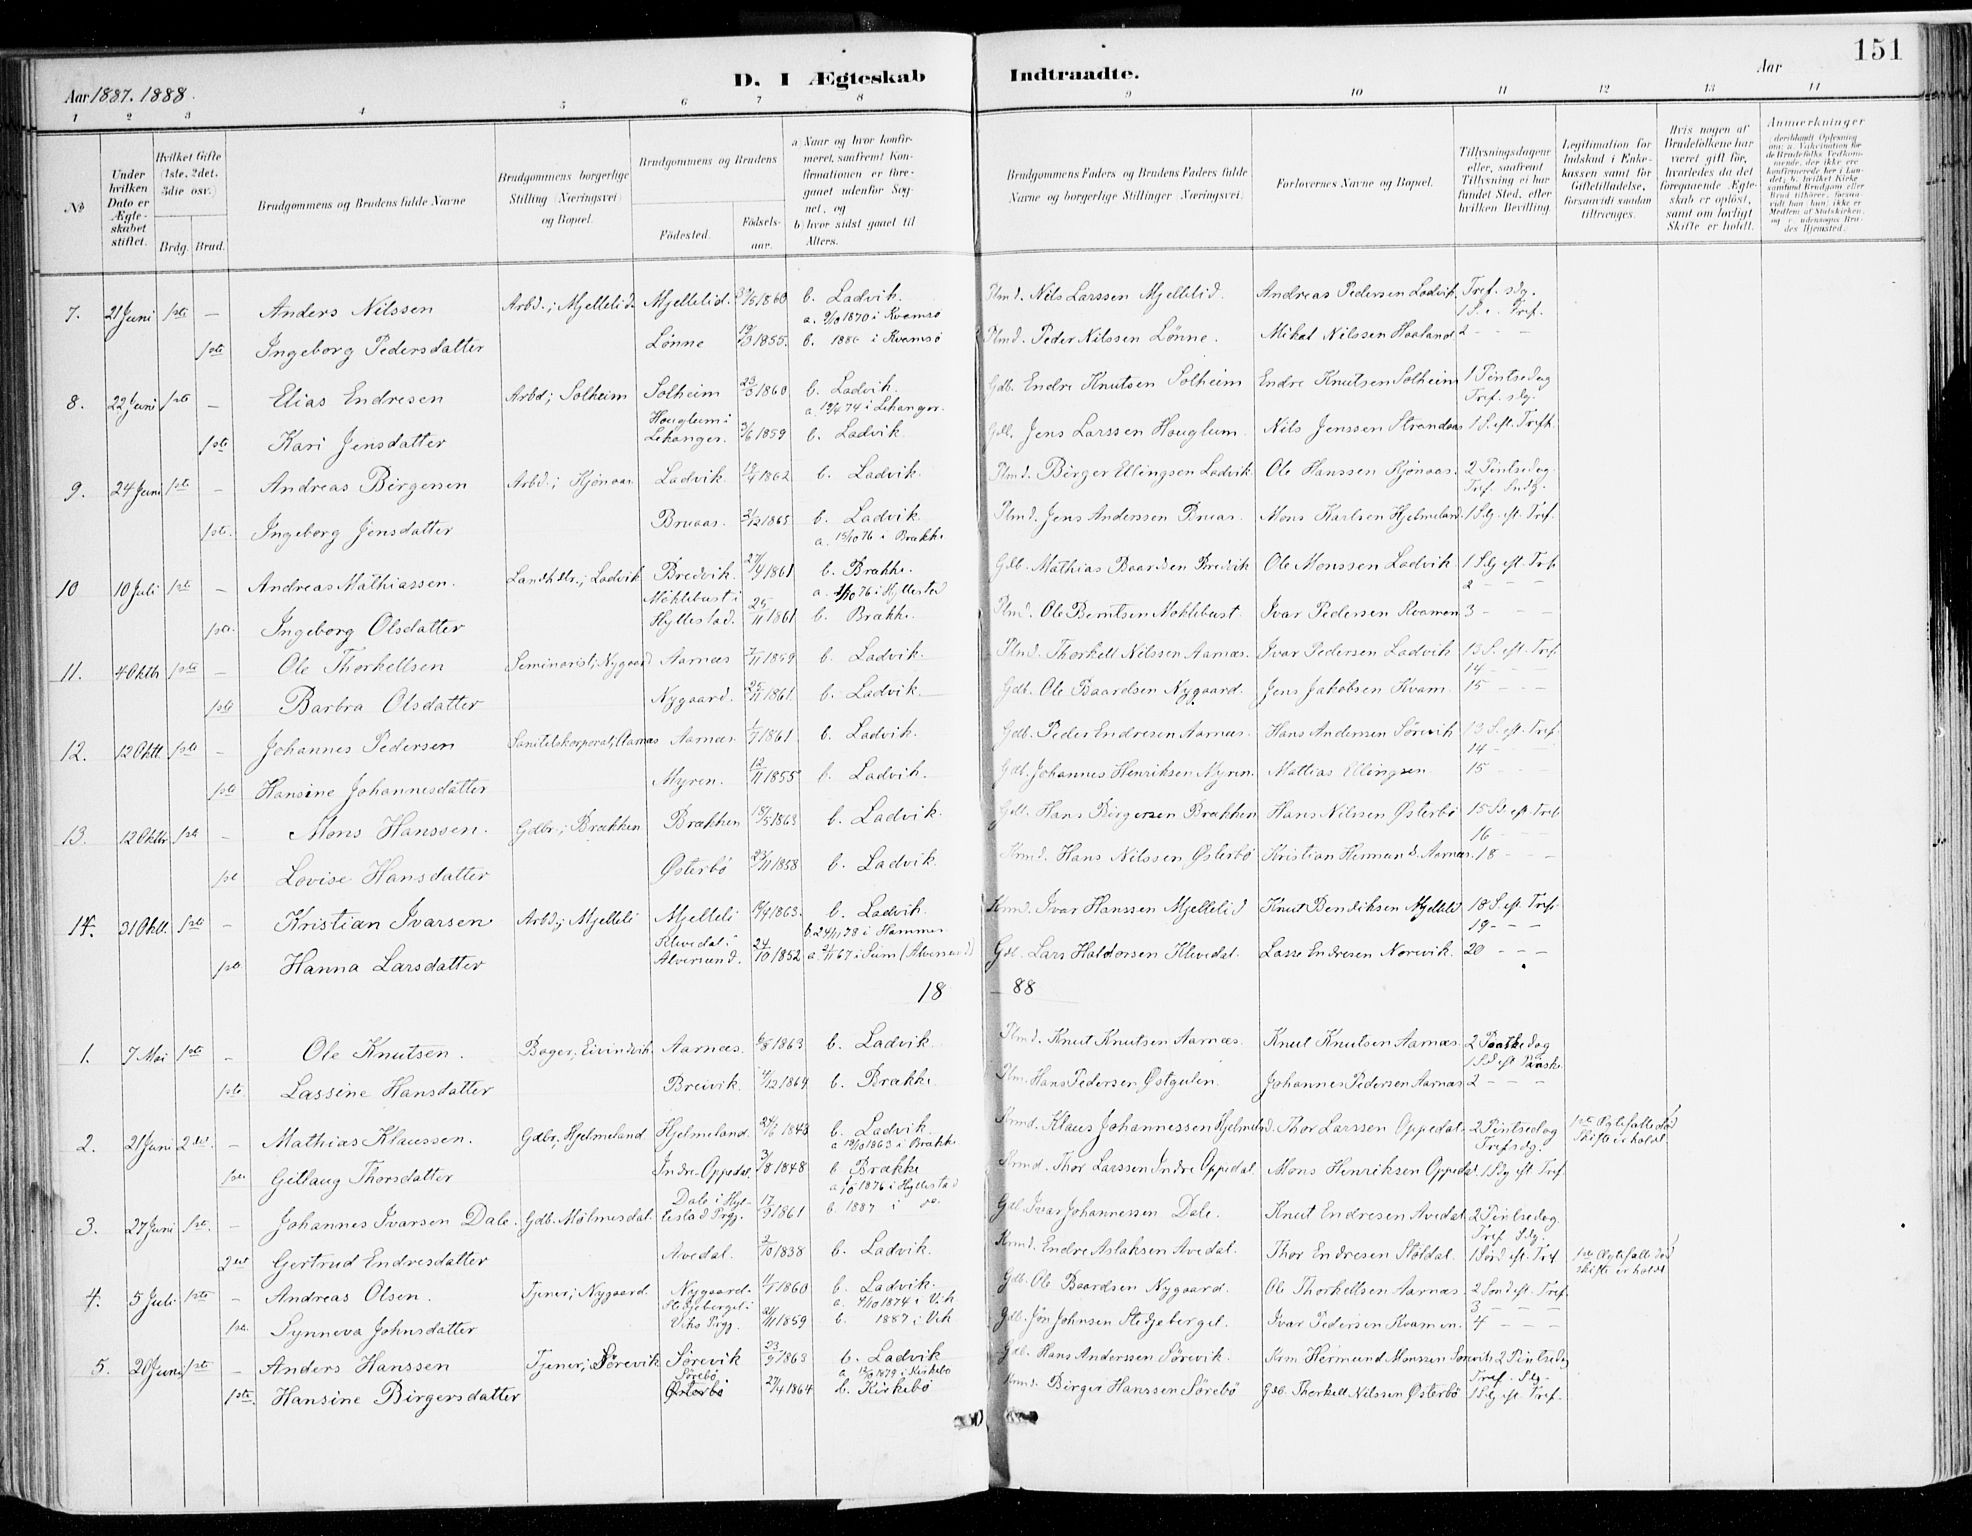 151
Aar 1887. 1888.
D. I Ægteskab Indtraadte.
Aar
1 2 3 4 5 6 7 8 9 10 11 12 13 14
No.
Under hvilken Dato er Ægteskabet stiftet.
Hvilket Gifte (1ste, 2det, 3die osv.)
Brdg. Brud.
Brudgommens og Brudens fulde Navne
Brudgommens borgerlige Stilling (Næringsvei) og Bopæl.
Brudgommens og Brudens
Fødested. Fødselsaar.
a) Naar og hvor konfirmeret, saafremt Konfirmationen er foregaaet udenfor Sognet, og
b) hvor sidst gaaet til Alters.
Brudgommens Faders og Brudens Faders fulde Navne og borgerlige Stillinger (Næringsvei).
Forlovernes Navne og Bopæl.
Tillysningsdagene eller, saafremt Tillysning ei har fundet Sted, efter hvilken Bevilling.
Legitimation for Indskud i Enkekassen samt for Giftetilladelse, forsaavidt saadan tiltrænges.
Hvis nogen af Brudefolkene har været gift før, hvorledes da det foregaaende Ægteskab er opløst, samt om lovligt Skifte er holdt.
Anmærkninger
7. 21 Juni 1ste – Anders Nilssen Arbd.; Mjellelid. Mjellelid. /5 1860 b. Ladvik. Plmd. Nils Larssen Mjellelid. Andreas Pedersen Ladvik Tref. sdg.
1ste Ingeborg Pedersdatter Lønne 1855. a. 9/10 1870 i Kvamsø b. 1886 i Kvamsø Plmd. Peder Nilssen Lønne. Mikal Nilssen Haaland 1 S. e. Tref. 2 – – –
8. 22 Juni 1ste – Elias Endresen Arbd; Solheim Solheim 23/3 1860 b. Ladvik. Gdb. Endre Knutsen Solheim Endre Knutsen Solheim 1 Pintsedag Tref. sdg.
1ste Kari Jensdatter Houglum i Lekanger. 3/6 1859 a. 19/4 74 i Lekanger. b. Ladvik. Gdb. Jens Larssen Houglum. Nils Jenssen Strandaas 1 S. eft. Tref.
9. 24 Juni 1ste – Andreas Birgersen Arbd.; Kjønaas Ladvik. 19/4 1862 b. Ladvik. Plmd. Birger Ellingsen Ladvik Ole Hanssen Kjønaas. 2 Pintsedag Tref. Sndg.
1ste. Ingeborg Jensdatter Bruaas. 3/12 1865 b. Ladvik. Plmd. Jens Anderssen Bruas. Mons Karlsen Hjelmeland. 1 Sdg. eft. Tref.
10 10 Juli 1ste – Andreas Mathiassen. Landhdlr.; Ladvik Bredvik. 27/9 1861 a. 15/10 76 i Brække b. Brække. Gdb. Mathias Baardsen Bredvik Ole Monssen Ladvik 1 Sdg eft. Tref. 2 – – –
1ste. Ingeborg Olsdatter Møklebust i Hyllestad. 25/11 1861 a. 1/10 76 i Hyllestad b. Brække. Plmd. Ole Berntsen Moklebust. Ivar Pedersen Kvamen 3 – – –
11. 4 Oktbr 1ste – Ole Thorkellsen Seminarist; Nygaard Aarnæs 7/11 1859 b. Ladvik. Plmd. Thorkell Nilssen Aarnæs. Ivar Pedersen Ladvik 13 S. eft. Tref. 14 – –
1ste Barbra Olsdatter Nygaard. 25/11 1861 b. Ladvik. Gdb. Ole Baardsen Nygaard. Jens Jakobsen Kvam. 15 – – –
12. 12 Oktb. 1ste – Johannes Pedersen Sanitetskorporal; Aarnæs Aarnæs 1/7 1861 b. Ladvik. Gdb. Peder Endresen Aarnæs. Hans Andersen Sørevik 13 S. eft. Tref. 14 –
1ste Hansine Johannesdatter Myren. 12/11 1855 b. Ladvik. Gdb. Johannes Henriksen Myren. Mattias Ellingsen 15 – – –
13. 12 Oktbr 1ste – Mons Hanssen. Gdbr.; Brækken Brækken 15/5 1863 b. Ladvik. Gdb. Hans Birgersen Brækken Hans Nilssen Østerbø 15 S. eft. Tref. 16 –
1ste Lovise Hansdatter Østerbø 23/11 1858 b. Ladvik. Krmd. Hans Nilssen Østerbø Kristian Hermund. Aarnæs. 18 – – –
14. 31 Oktb. 1ste – Kristian Ivarsen Arbd.; Mjelleli Mjelleli 19/9 1863. b. Ladvik. Krmd. Ivar Hanssen Mjellelid Knut Bendiksen Mjellelid 18 S. eft. Tref. 19 – – –
1ste Hanna Larsdatter Klevedal i Alversund. 24/10 1852 b. 24/11 78 i Hammer a. 21/4 67 i Seim (Alversund) Gdb. Lars Haldorsen Klevedal. Lasse Endresen Norevik. 20 – – –
18 88
1. 7 Mai 1ste – Ole Knutsen. Bager; Eivindvik. Aarnæs. 6/8 1863 b. Ladvik. Plmd. Knut Knutsen Aarnæs. Knut Knutsen Aarnæs. 2 Paaskedag 1 Sd eft Paaske
1ste. Lassine Hansdatter Breivik. 4/12 1864 b. Brække. Plm. Hans Pedersen Østgulen. Johannes Pedersen Aarnæs 2 – – –
2. 21 Juni 2det. – Mathias Klaussen. Gdbr, Hjelmeland Hjelmeland. 24/6 1843 b. Ladvik. Krmd. Klaus Johannessen Hjelmeland. Thor Larssen Oppedal. 2 Pintsedag Trefsdg. 1ste Ægtefælle død Skifte er holdt.
1ste Gitlaug Thorsdatter Indre Oppedal. 3/8 1848 a 19/10 1863 i Brække b Brække Krmd. Thor Larssen Indre Oppedal. Mons Henriksen Oppedal 1 Sdg eft. Tref.
3. 27 Juni 1ste. – Johannes Ivarsen Dale. Gdb. Mølmesdal. Dale i Hyllestad Prgj. 17/9 1861 a /10 1876 i Hyllestad b. 1887 i do. Gdb. Ivar Johannessen Dale. Knut Endresen Avedal 2 Pintsedag Tref. Sdg.
2det Gjertrud Endresdatter Avedal. 2/10 1838 b. Ladvik. Krmd. Endre Aslaksen Avedal. Thor Endresen Støldal. 1 Sønd eft. Tref. 1ste Ægtefælle død skifte er holdt
4. 5 Juli 1ste – Andreas Olsen. Tjener; Nygaard. Nygaard. 1860 b. Ladvik. Gdb. Ole Baardsen Nygaard. Ole Thorkellsen Aarnæs. 2 Sønd eft. Tref. 3 – – –
1ste. Synneva Johnsdatter Stedjeberget i Viks Prgj. 21/11 1859 a. 4/10 1874 i Vik b. 1887 i Vik Gdb. Jon Johnsen Stedjeberget. Ivar Pedersen Kvamen. 4 – – –
5. 20 Juni 1ste – Anders Hanssen Tjener; Sørevik Sørevik 23/9 1863 b. Ladvik Gdb. Hans Anderssen Sørevik. Krm. Hermund Monssen Sørevik 2 Pintsedag Tref. Sdg.
1ste. Hansine Birgersdatter Sørebø Østerbø 27/4 1864 a. 12/10 1879 i Kirkebø b. Kirkebø Krmd. Birger Hanssen Sørebø Gdb. Thorkell Nilssen Østerbø 1 Sdg eft. Tref.